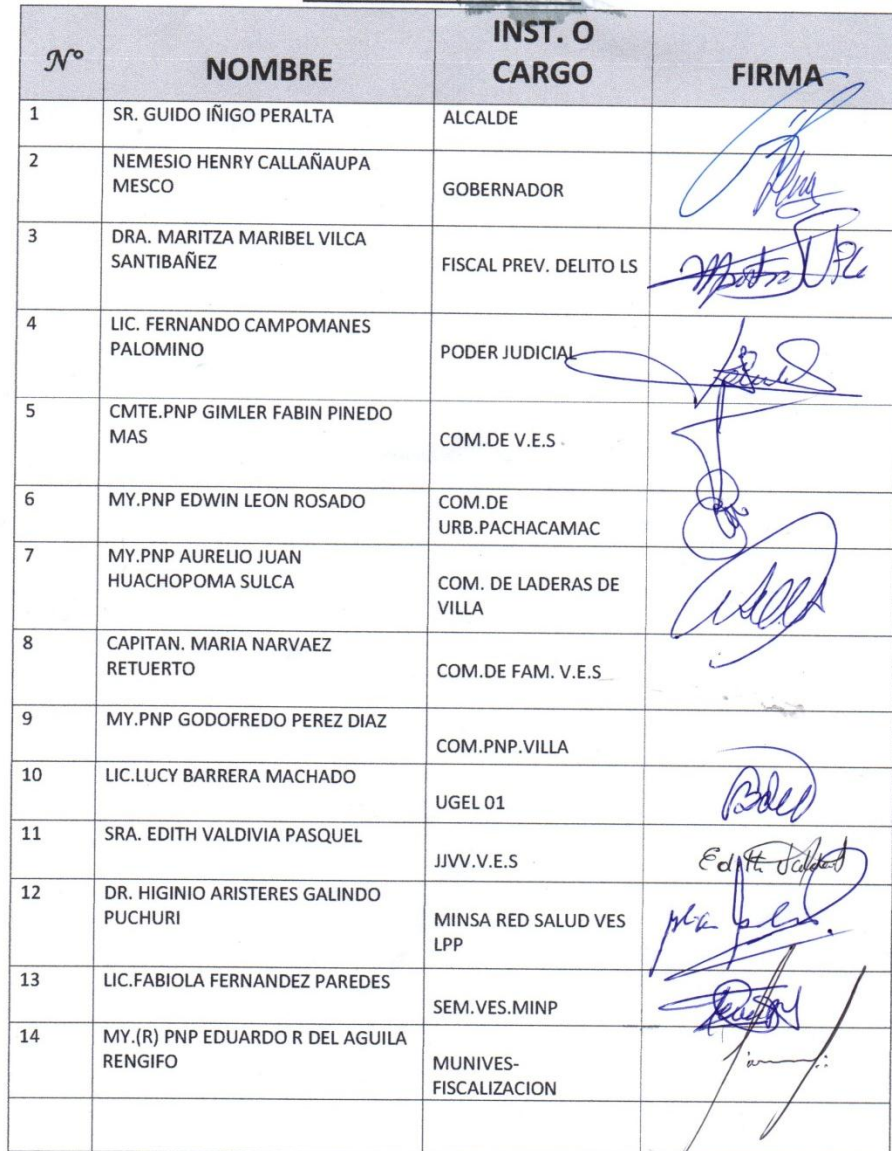 Nº
NOMBRE
INST. O
CARGO
FIRMA
1
SR. GUIDO IÑIGO PERALTA
ALCALDE
2
NEMESIO HENRY CALLAÑAUPA
MESCO
GOBERNADOR
3
DRA. MARITZA MARIBEL VILCA
SANTIBAÑEZ
FISCAL PREV. DELITO LS
4
LIC. FERNANDO CAMPOMANES
PALOMINO
PODER JUDICIAL
5
CMTE.PNP GIMLER FABIN PINEDO
MAS
COM.DE V.E.S
6
MY.PNP EDWIN LEON ROSADO
COM.DE
URB.PACHACAMAC
7
MY.PNP AURELIO JUAN
HUACHOPOMA SULCA
COM. DE LADERAS DE
VILLA
8
CAPITAN. MARIA NARVAEZ
RETUERTO
COM.DE FAM. V.E.S
9
MY.PNP GODOFREDO PEREZ DIAZ
COM.PNP.VILLA
10
LIC.LUCY BARRERA MACHADO
UGEL 01
11
SRA. EDITH VALDIVIA PASQUEL
JJVV.V.E.S
Edith
12
DR. HIGINIO ARISTERES GALINDO
PUCHURI
MINSA RED SALUD VES
LPP
13
LIC.FABIOLA FERNANDEZ PAREDES
SEM.VES.MINP
14
MY.(R) PNP EDUARDO R DEL AGUILA
RENGIFO
MUNIVES-
FISCALIZACION